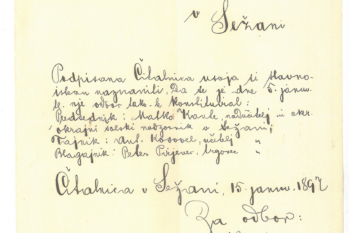 v Sežani
Podpisana Čitalnica usoja si slavno-
istemu naznaniti, da se je dne 5. januv.
t. nje odbor tak. l. konstituiral:
Predsednik: Matko Kante, nadučitelj in okr.
okrajni šolski nadzornik v Sežani;
Tajnik: Ant. Kosovel, učitelj "
Blagajnik: Peter , trgovec "
Čitalnica v Sežani, 15. januv. 1897
Za odbor: